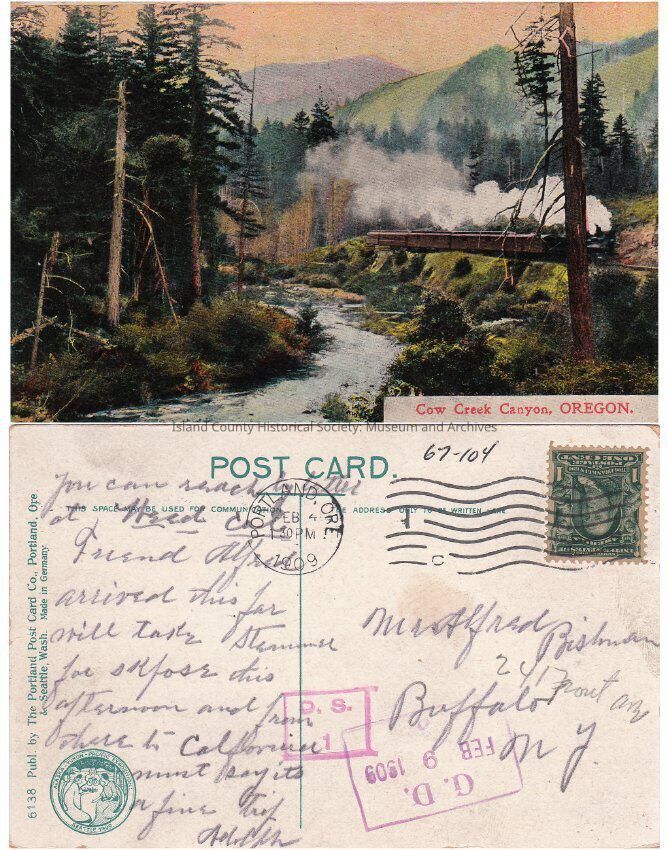 Cow Creek Canyon, OREGON.
Island County Historical Society: Museum and Archives
67-104
POST CARD.
THIS SPACE MAY BE USED FOR COMMUNICATION
ADDRESS ONLY TO BE WRITTEN HERE
PORTLAND, ORE.
FEB 4
130PM
1909
1
C
You can reach letter
at Weed Cal
Friend Alfred
arrived this far
will take Steammer
for this
afternoon and from
there to California
must say its
a fine trip
Adolph
Mr Alfred
Buffalo
N Y.
2417 Front
P. S.
1
G. D.
FEB 9 1909
6138 Publ. by The Portland Post Card Co., Portland, Ore.
& Seattle, Wash. Made in Germany